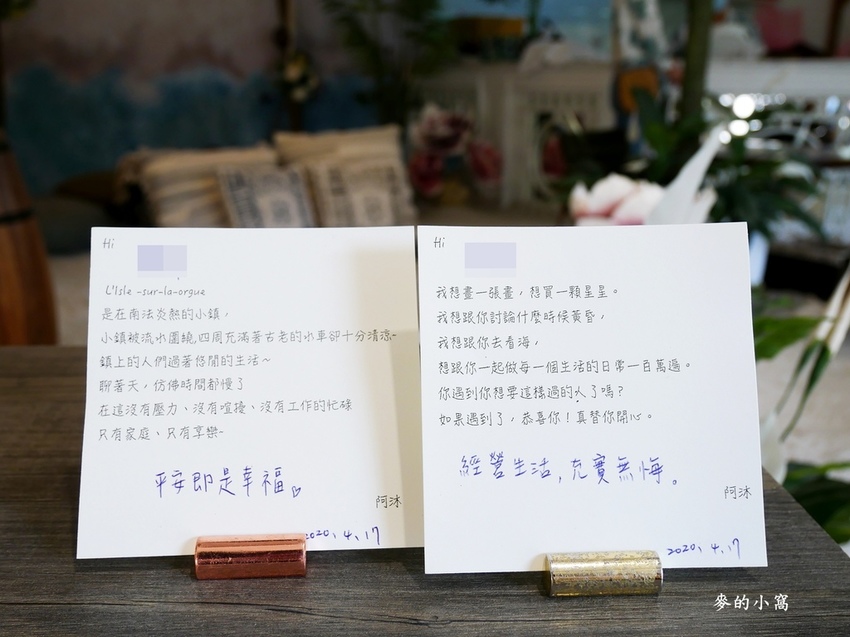 Hi
L'Isle -sur-la-orgue
是在南法炎熱的小鎮，
小鎮被流水圍繞,四周充滿著古老的水車卻十分清涼~
鎮上的人們過著悠閒的生活~
聊著天，仿佛時間都慢了
在這沒有壓力、沒有喧擾、沒有工作的忙碌
只有家庭、只有享樂~
平安即是幸福。
阿沐
2020. 4. 17
Hi
我想畫一張畫，想買一顆星星。
我想跟你討論什麼時候黃昏，
我想跟你去看海，
想跟你一起做每一個生活的日常一百萬遍。
你遇到你想要這樣過的人了嗎？
如果遇到了，恭喜你！真替你開心。
經營生活，充實無悔。
阿沐
2020. 4. 17
麥的小窩